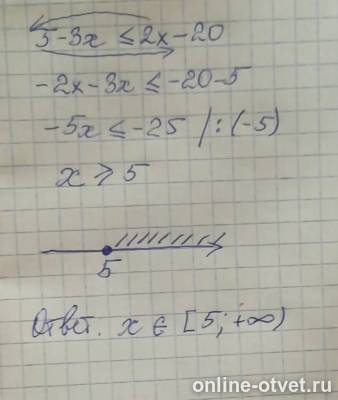 5-3x ≤ 2x-20
-2x-3x ≤ -20-5
-5x ≤ -25 /:(-5)
x ⩾ 5
5
Ответ. x ∈ [5; +∞)
online-otvet.ru